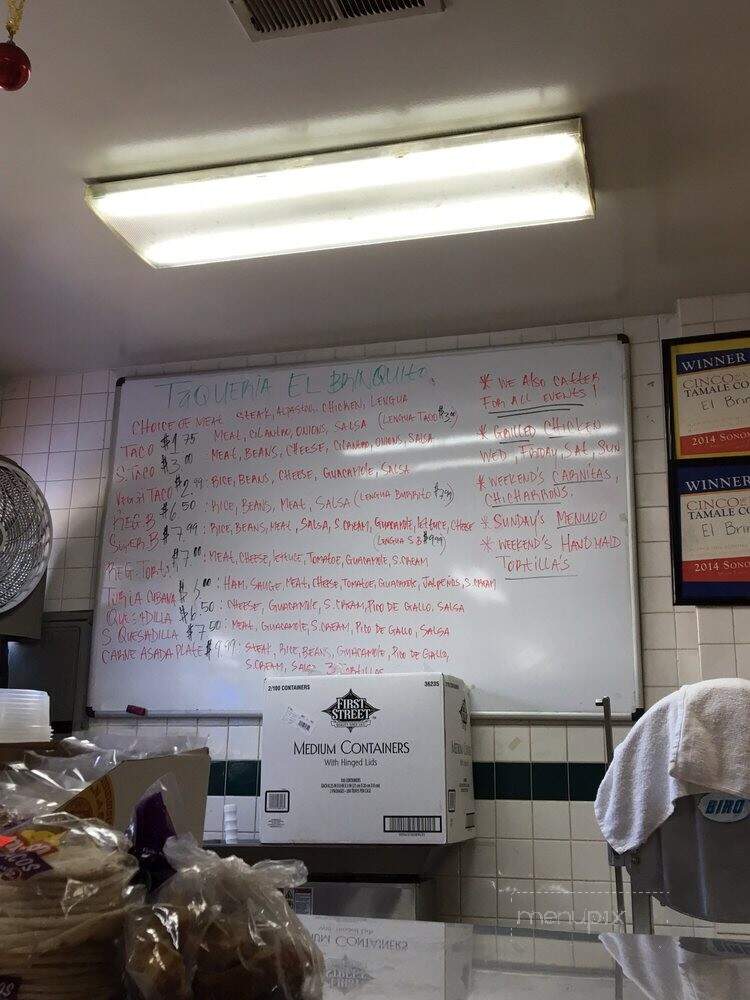 TAQUERIA EL BRINQUITO
CHOICE OF MEAT STEAK, ALPASTOR, CHICKEN, LENGUA
TACO $1.75 MEAT, CILANTRO, ONIONS, SALSA (LENGUA TACO
S. TACO $3.00 MEAT, BEANS, CHEESE, CILANTRO, ONIONS, SALSA
TACO $2.99: RICE, BEANS, CHEESE, GUACAMOLE, SALSA
REG B $6.50: RICE, BEANS, MEAT, SALSA (LENGUA BURRITO
SUPER B $7.99: RICE, BEANS, MEAT, SALSA, S.CREAM, GUACAMOLE, LETTUCE, CHEESE
(LENGUA S.B $9.99)
REG. TORTA $7.00: MEAT, CHEESE, LETTUCE, TOMATOE, GUACAMOLE, S.CREAM
CUBANA HAM, SAUGE, MEAT, CHEESE, TOMATOE, GUACAMOLE, JALPEÑOS, S.CREAM
QUESADILLA $6.50: CHEESE, GUACAMOLE, S.CREAM, PICO DE GALLO, SALSA
S QUESADILLA $7.50: MEAT, GUACAMOLE, S.CREAM, PICO DE GALLO, SALSA
CARNE ASADA PLATE $9.99: STEAK, RICE, BEANS, GUACAMOLE, PICO DE GALLO,
S.CREAM, SALSA 3 TORTILLAS
* WE ALSO CATTER
FOR ALL EVENTS!
* GRILLED CHICKEN
WED, FRIDAY, SAT, SUN
* WEEKEND'S CARNITAS,
CHICHARRONS.
* SUNDAY'S MENUDO
* WEEKEND'S HANDMAID
TORTILLA'S
WINNER
CINCO
TAMALE CO
El Brin
2014 SONO
WINNER
CINCO
TAMALE CO
El Brin
2014 SONO
2/100 CONTAINERS
36235
FIRST
STREET
MEDIUM CONTAINERS
With Hinged Lids
BIRO
menupix
MEDIUM CONTAINERS